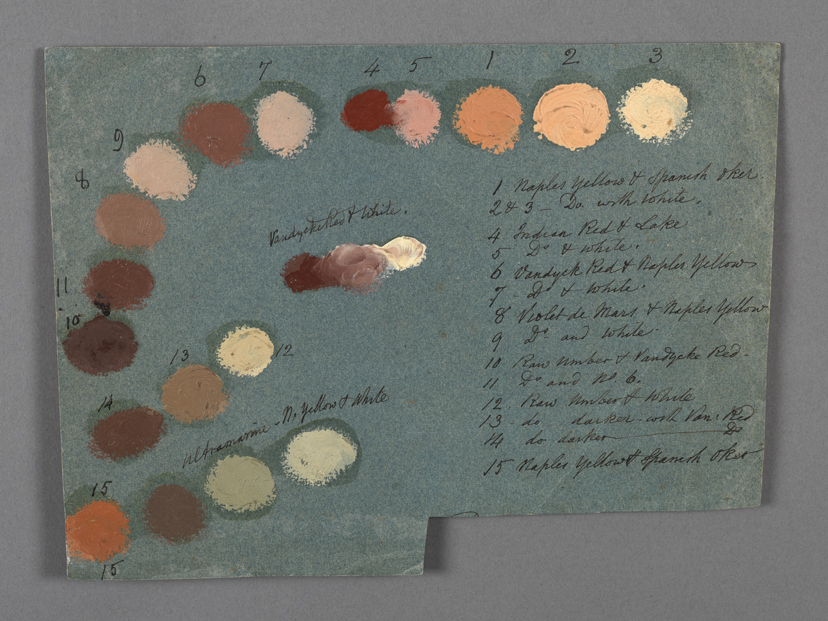 6 7 4 5 1 2 3
9
8
11
10
13
12
14
15
15
Vandycke Red & White.
Ultramarine - N. Yellow & White
1 Naples Yellow & Spanish Oker
2 & 3 - Do. with White.
4 Indian Red & Lake
5 Do & White.
6 Vandyck Red & Naples Yellow
7 - Do & White.
8 Violet de Mars & Naples Yellow
9 Do and White.
10 Raw Umber & Vandycke Red -
11 Do and No. 6.
12. Raw Umber & White
13 - do darker with Van: Red
14 do darker Do
15 Naples Yellow & Spanish Oker